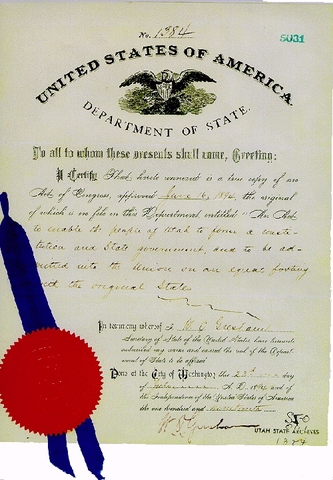 No. 1384
5031
UNITED STATES OF AMERICA.
DEPARTMENT OF STATE.
To all to whom these presents shall come, Greeting:
I Certify That hereto annexed is a true copy of an
Act of Congress, approved 1894, the original
of which is on file in this Department entitled "An Act
to enable the people of Utah to form a consti-
tution and State government, and to be ad-
mitted into the Union on an equal footing
with the original States
In testimony whereof I, W. Q. Gresham
Secretary of State of the United States, have hereunto
subscribed my name and caused the seal of the Department
of State to be affixed.
Done at the City of Washington this day
of A.D. 1894 and of
the Independence of the United States of America
the one hundred and
W. Q. Gresham
UTAH STATE ARCHIVES